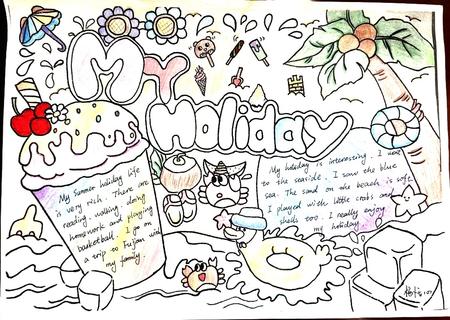 My
Holiday
My Summer holiday life
is very rich. There are
reading. walking doing
homework and playing
basketball. I go on
a trip to Fujian with
my family.
My holiday is interesting. I
to the seaside. I saw the blue
sea. The sand on the beach is soft.
I played with little crabs and
sheds too. I really enjoy
my holiday